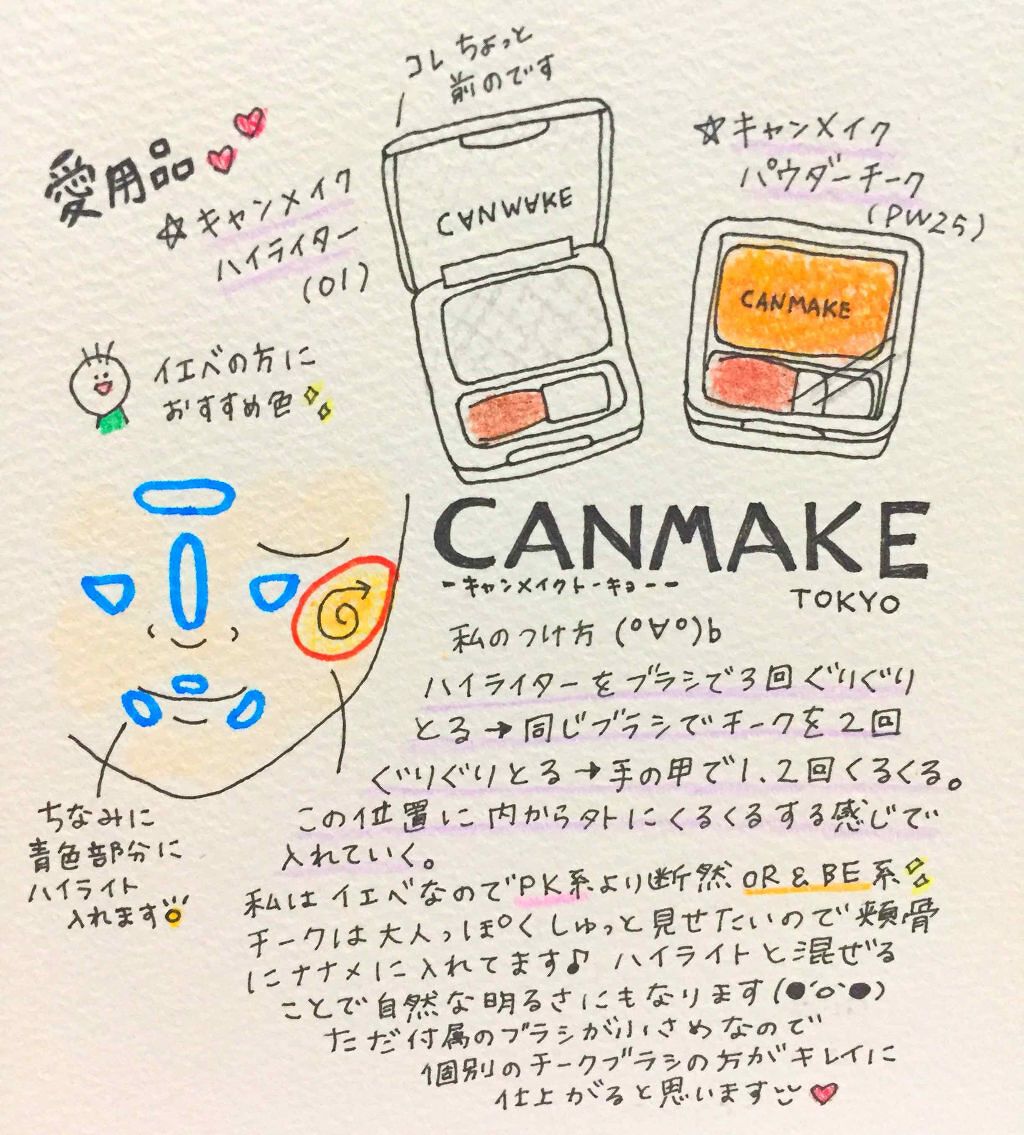 愛用品
コレちょっと
前のです
☆キャンメイク
ハイライター
(01)
CANMAKE
☆キャンメイク
パウダーチーク
(PW25)
CANMAKE
イエベの方に
おすすめ色
CANMAKE
-キャンメイクトーキョー-
TOKYO
私のつけ方 (°∀°)b
ハイライターをブラシで3回ぐりぐり
とる→同じブラシでチークを2回
ぐりぐりとる→手の甲で1.2回くるくる。
この位置に内から外にくるくるする感じで
入れていく。
ちなみに
青色部分に
ハイライト
入れます
私はイエベなのでPK系より断然OR&BE系
チークは大人っぽくしゅっと見せたいので頬骨
にナナメに入れてます♪ ハイライトと混ぜる
ことで自然な明るさにもなります(●´o`●)
ただ付属のブラシが小さめなので
個別のチークブラシの方がキレイに
仕上がると思います